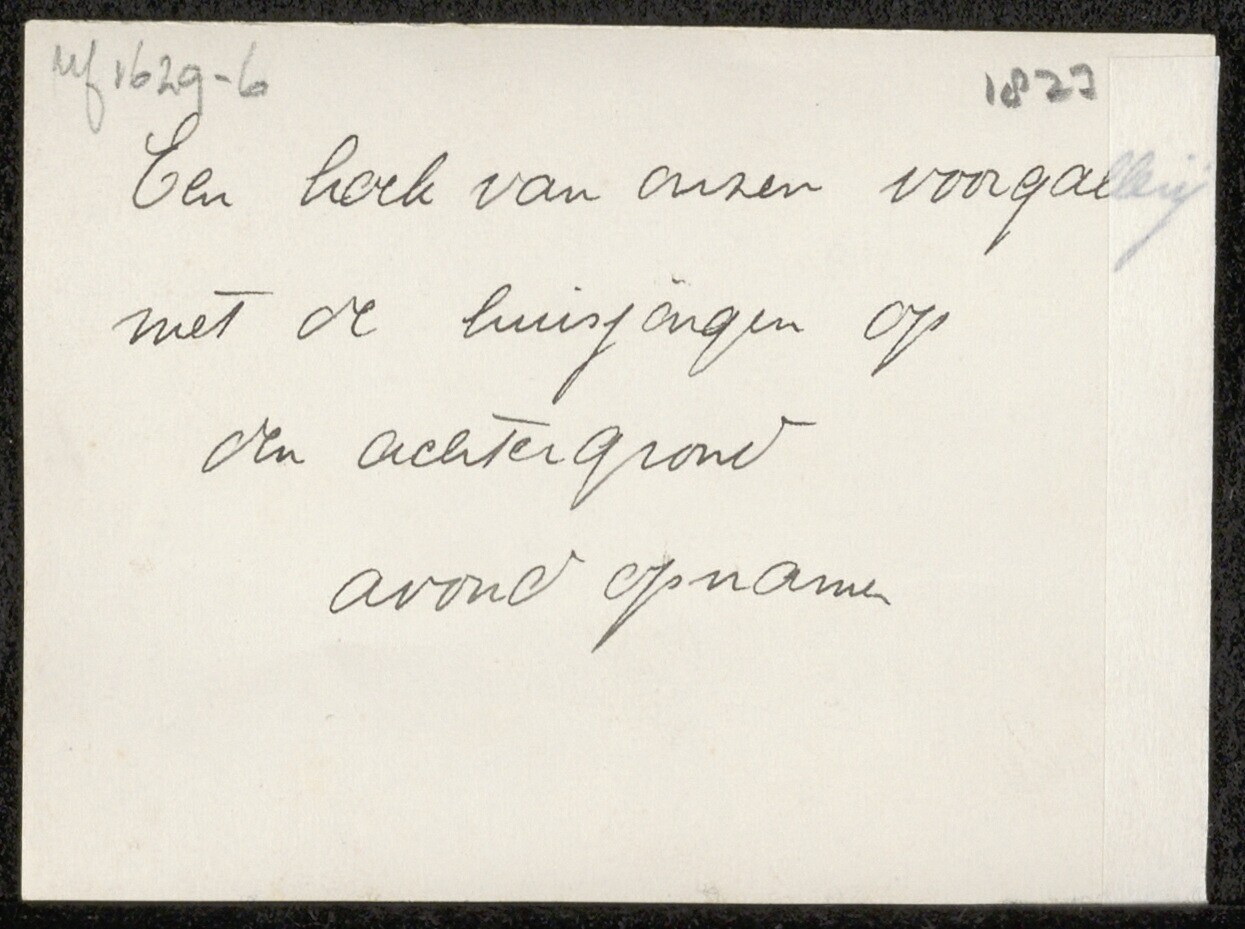 Wf 1629-6 1822
Een hoek van onzen voorgallerij
met de huisjongen op
den achtergrond
avond opnamen